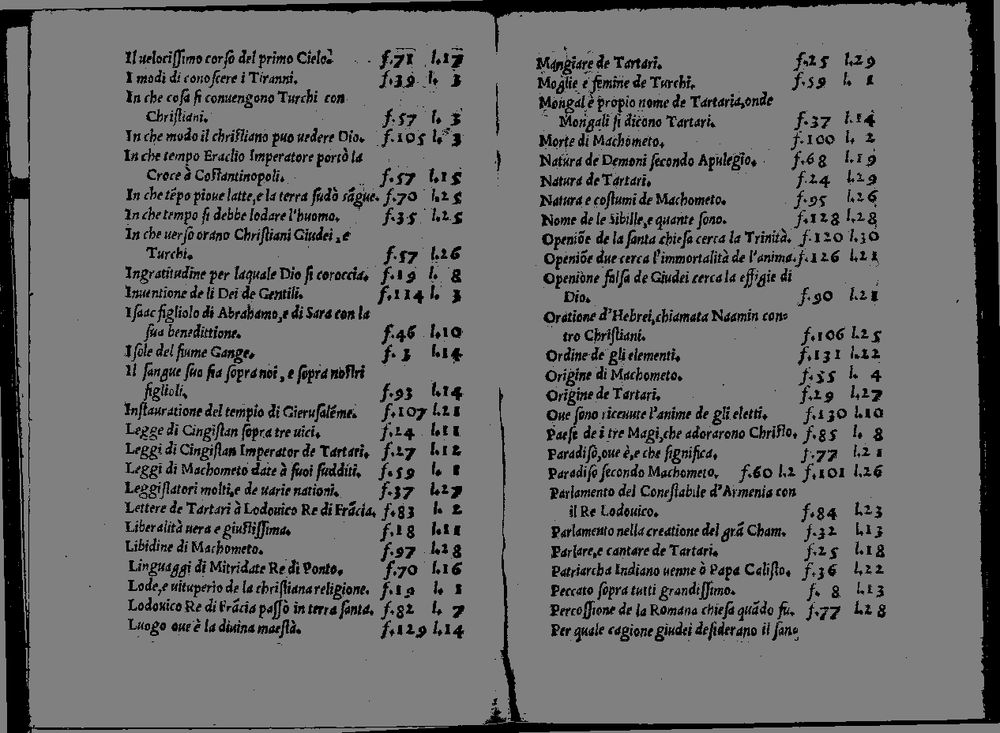 Il uelocissimo corso del primo Cielo. f.71 l.17
I modi di conoscere i Tiranni. f.39 l. 3
In che cosa si conuengono Turchi con
Christiani. f.57 l. 3
In che modo il christiano puo uedere Dio. f.105 l. 3
In che tempo Eraclio Imperatore portò la
Croce à Costantinopoli. f.57 l.15
In che tẽpo pioue latte,e la terra sudò sãgue. f.70 l.25
In che tempo si debbe lodare l'huomo. f.35 l.25
In che uerso orano Christiani Giudei ,e
Turchi. f.57 l.26
Ingratitudine per laquale Dio si coroccia. f.19 l. 8
Inuentione de li Dei de Gentili. f.114 l. 3
Isaac figliolo di Abrahamo,e di Sara con la
sua benedittione. f.46 l.10
Isole del fiume Gange. f. 3 l.14
Il sangue suo sia sopra noi , e sopra nostri
figlioli. f.93 l.14
Instauratione del tempio di Gierusalẽme. f.107 l.21
Legge di Cingistan sopra tre uici. f.24 l.11
Leggi di Cingistan Imperator de Tartari. f.27 l.12
Leggi di Machometo date à suoi sudditi. f.59 l. 1
Leggislatori molti,e de uarie nationi. f.37 l.27
Lettere de Tartari à Lodouico Re di Frãcia. f.83 l. 2
Liberalità uera e giustissima. f.18 l.11
Libidine di Machometo. f.97 l.28
Linguaggi di Mitridate Re di Ponto. f.70 l.16
Lode,e uituperio de la christiana religione. f.19 l. 1
Lodouico Re di Frãcia passò in terra santa. f.82 l. 7
Luogo oue è la diuina maestà. f.129 l.14
Mangiare de Tartari. f.25 l.29
Moglie e femine de Turchi. f.59 l. 1
Mongal è propio nome de Tartaria,onde
Mongali si dicono Tartari. f.37 l.14
Morte di Machometo. f.100 l. 2
Natura de Demoni secondo Apulegio. f.68 l.19
Natura de Tartari. f.24 l.29
Natura e costumi de Machometo. f.95 l.26
Nome de le Sibille,e quante sono. f.128 l.28
Openiõe de la santa chiesa cerca la Trinità. f.120 l.30
Openiõe due cerca l'immortalità de l'anima. f.126 l.21
Openione falsa de Giudei cerca la effigie di
Dio. f.90 l.21
Oratione d'Hebrei,chiamata Naamin con=
tro Christiani. f.106 l.25
Ordine de gli elementi. f.131 l.22
Origine di Machometo. f.55 l. 4
Origine de Tartari. f.29 l.27
Oue sono riceuute l'anime de gli eletti. f.130 l.10
Paese de i tre Magi,che adorarono Christo. f.85 l. 8
Paradiso,oue è,e che significa. f.77 l.21
Paradiso secondo Machometo. f.60 l.2 f.101 l.26
Parlamento del Conestabile d'Armenia con
il Re Lodouico. f.84 l.23
Parlamento nella creatione del grã Cham. f.32 l.13
Parlare,e cantare de Tartari. f.25 l.18
Patriarcha Indiano uenne ò Papa Calisto. f.36 l.22
Peccato sopra tutti grandissimo. f. 8 l.13
Percossione de la Romana chiesa quãdo fu. f.77 l.28
Per quale cagione giudei desiderano il san=